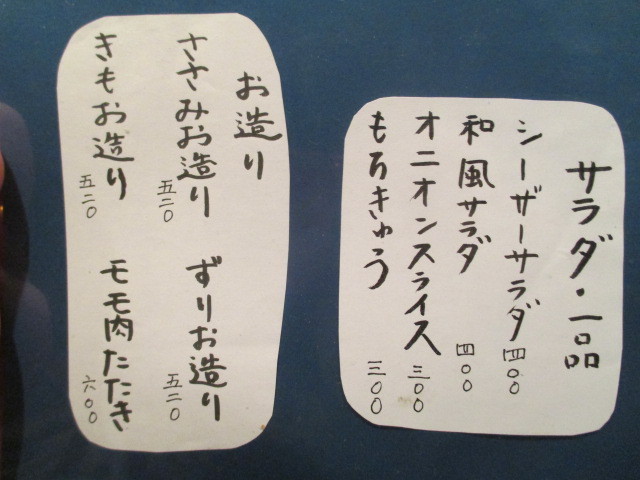 サラダ・一品
シーザーサラダ 四〇〇
和風サラダ 四〇〇
オニオンスライス 三〇〇
もろきゅう 三〇〇
お造り
ささみお造り 五二〇
ずりお造り 五二〇
きもお造り 五二〇
モモ肉たたき 六〇〇